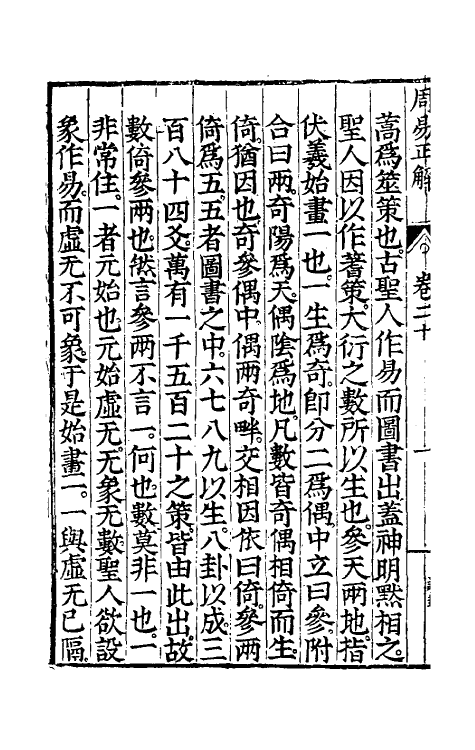 周易正解
卷二十
一
蒿爲筮策也。古聖人作易而圖書出。蓋神明黙相之。
聖人因以作蓍策。大衍之數所以生也。參天兩地。指
伏羲始畫一也。一生爲奇。卽分二爲偶。中立曰參。附
合曰兩。奇陽爲天。偶陰爲地。凡數皆奇偶相倚而生。
倚。猶因也。奇參偶中。偶兩奇畔。交相因依曰倚。參兩
倚爲五。五者圖書之中。六七八九以生。八卦以成。三
百八十四爻。萬有一千五百二十之策。皆由此出。故
數倚參兩也。然言參兩不言一。何也。數莫非一也。一
非常住。一者元始也。元始虛无。无象无數。聖人欲設
象作易。而虛无不可象。于是始畫二。一與虛无已隔。